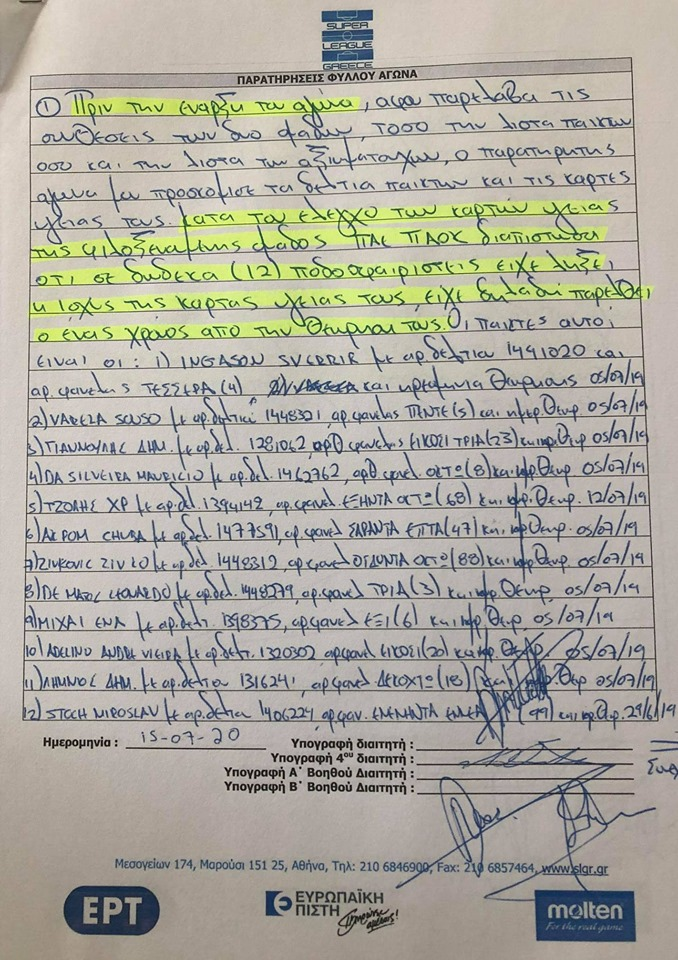 SUPER
LEAGUE
GREECE
ΠΑΡΑΤΗΡΗΣΕΙΣ ΦΥΛΛΟΥ ΑΓΩΝΑ
① Πριν την εναρξη του αγωνα, αφου παρελαβα τις
συνθεσεις των δυο ομαδων, τοσο την λιστα παικτων
οσο και την λιστα των αξιωματουχων, ο παρατηρητης
αγωνα μου προσκομισε τα δελτια παικτων και τις καρτες
υγειας τους. Κατα τον ελεγχο των καρτων υγειας
της φιλοξενουμενης ομαδος ΠΑΕ ΠΑΟΚ διαπιστωθη
οτι σε δωδεκα (12) ποδοσφαιριστες ειχε ληξει
η ισχυς της καρτας υγειας τους, ειχε δηλαδη παρελθει
ο ενας χρονος απο την θεωρηση τους. Οι παικτες αυτοι
ειναι οι: 1) INGASON SVERRIR με αρ. δελτιου 1491020 και
αρ. φανελας ΤΕΣΣΕΡΑ (4) και ημερομηνια θεωρησης 05/07/19
2) VARELA SONSO με αρ. δελτιου 1448301, αρ. φανελας ΠΕΝΤΕ (5) και ημερ. Θεωρ. 05/07/19
3) ΓΙΑΝΝΟΥΛΗΣ ΔΗΜ. με αρ. δελ. 1281062, αρθ φανελας ΕΙΚΟΣΙ ΤΡΙΑ (23) και ημερ. Θεωρ 05/07/19
4) DA SILVEIRA MAURICIO με αρ. δελ. 1462762, αρθ. φανελ. ΟΚΤΩ (8) και ημερ. Θεωρ. 05/07/19
5) ΤΖΟΛΗΣ ΧΡ με αρ. δελ. 1394142, αρ. φανελ. ΕΞΗΝΤΑ ΟΚΤΩ (68) και ημερ. Θεωρ. 12/07/19
6) AKPOM CHUBA με αρ. δελ. 1477591, αρ. φανελ ΣΑΡΑΝΤΑ ΕΠΤΑ (47) και ημερ Θεωρ. 05/07/19
7) ZIVKOVIC ZIVKO με αρ. δελ. 1448312, αρ. φανελ ΟΓΔΟΝΤΑ ΟΚΤΩ (88) και ημερ. Θεωρ. 05/07/19
8) DE LEONARDO με αρ. δελ. 1448279, αρ. φανελ ΤΡΙΑ (3) και ημερ. Θεωρ. 05/07/19
9) ΜΙΧΑΙ ΕΝΕΑ με αρ. δελτι. 1398375, αρ φανελ ΕΞΙ (6) και ημερ. Θεωρ. 05/07/19
10) ADELINO ANDRE VIEIRA με αρ. δελτ. 1320302 αρ φανελ ΕΙΚΟΣΙ (20) και ημερ. Θεωρ. 05/07/19
11) ΛΗΜΝΙΟΣ ΔΗΜ. με αρ. δελτιου 1316241, αρ φανελ ΔΕΚΟΧΤΩ (18) και ημερ. Θεωρ 05/07/19
12) STOCH MIROSLAV με αρ. δελτιου 1406224 αρ φαν. ΕΝΕΝΗΝΤΑ ΕΝΝΕΑ (99) και ημερ. Θεωρ. 29/6/19
Ημερομηνία : 15-07-20
Υπογραφή διαιτητή :
Υπογραφή 4ου διαιτητή :
Υπογραφή Α΄ Βοηθού Διαιτητή :
Υπογραφή Β΄ Βοηθού Διαιτητή :
Μεσογείων 174, Μαρούσι 151 25, Αθήνα, Τηλ: 210 6846900, Fax: 210 6857464, www.slgr.gr
ΕΡΤ
ΕΥΡΩΠΑΪΚΗ
ΠΙΣΤΗ
molten
For the real game